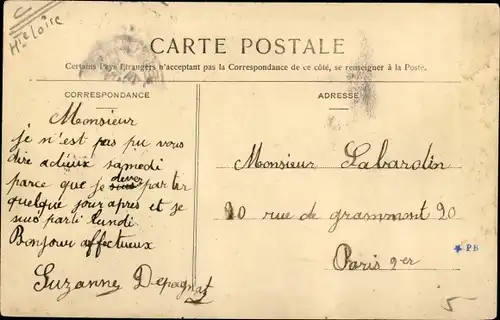 C
Hte Loire
CARTE POSTALE
Certains Pays Etrangers n'acceptant pas la Correspondance de ce côté, se renseigner à la Poste.
CORRESPONDANCE
Monsieur
je n'est pas pu vous
dire adieux samedi
parce que je dever partir
quelque jour après et je
suis parti lundi
Bonjour affectueux
Suzanne Depagnat
ADRESSE
Monsieur Labardin
20 rue de grammont 20
Paris 2er
* PB
5